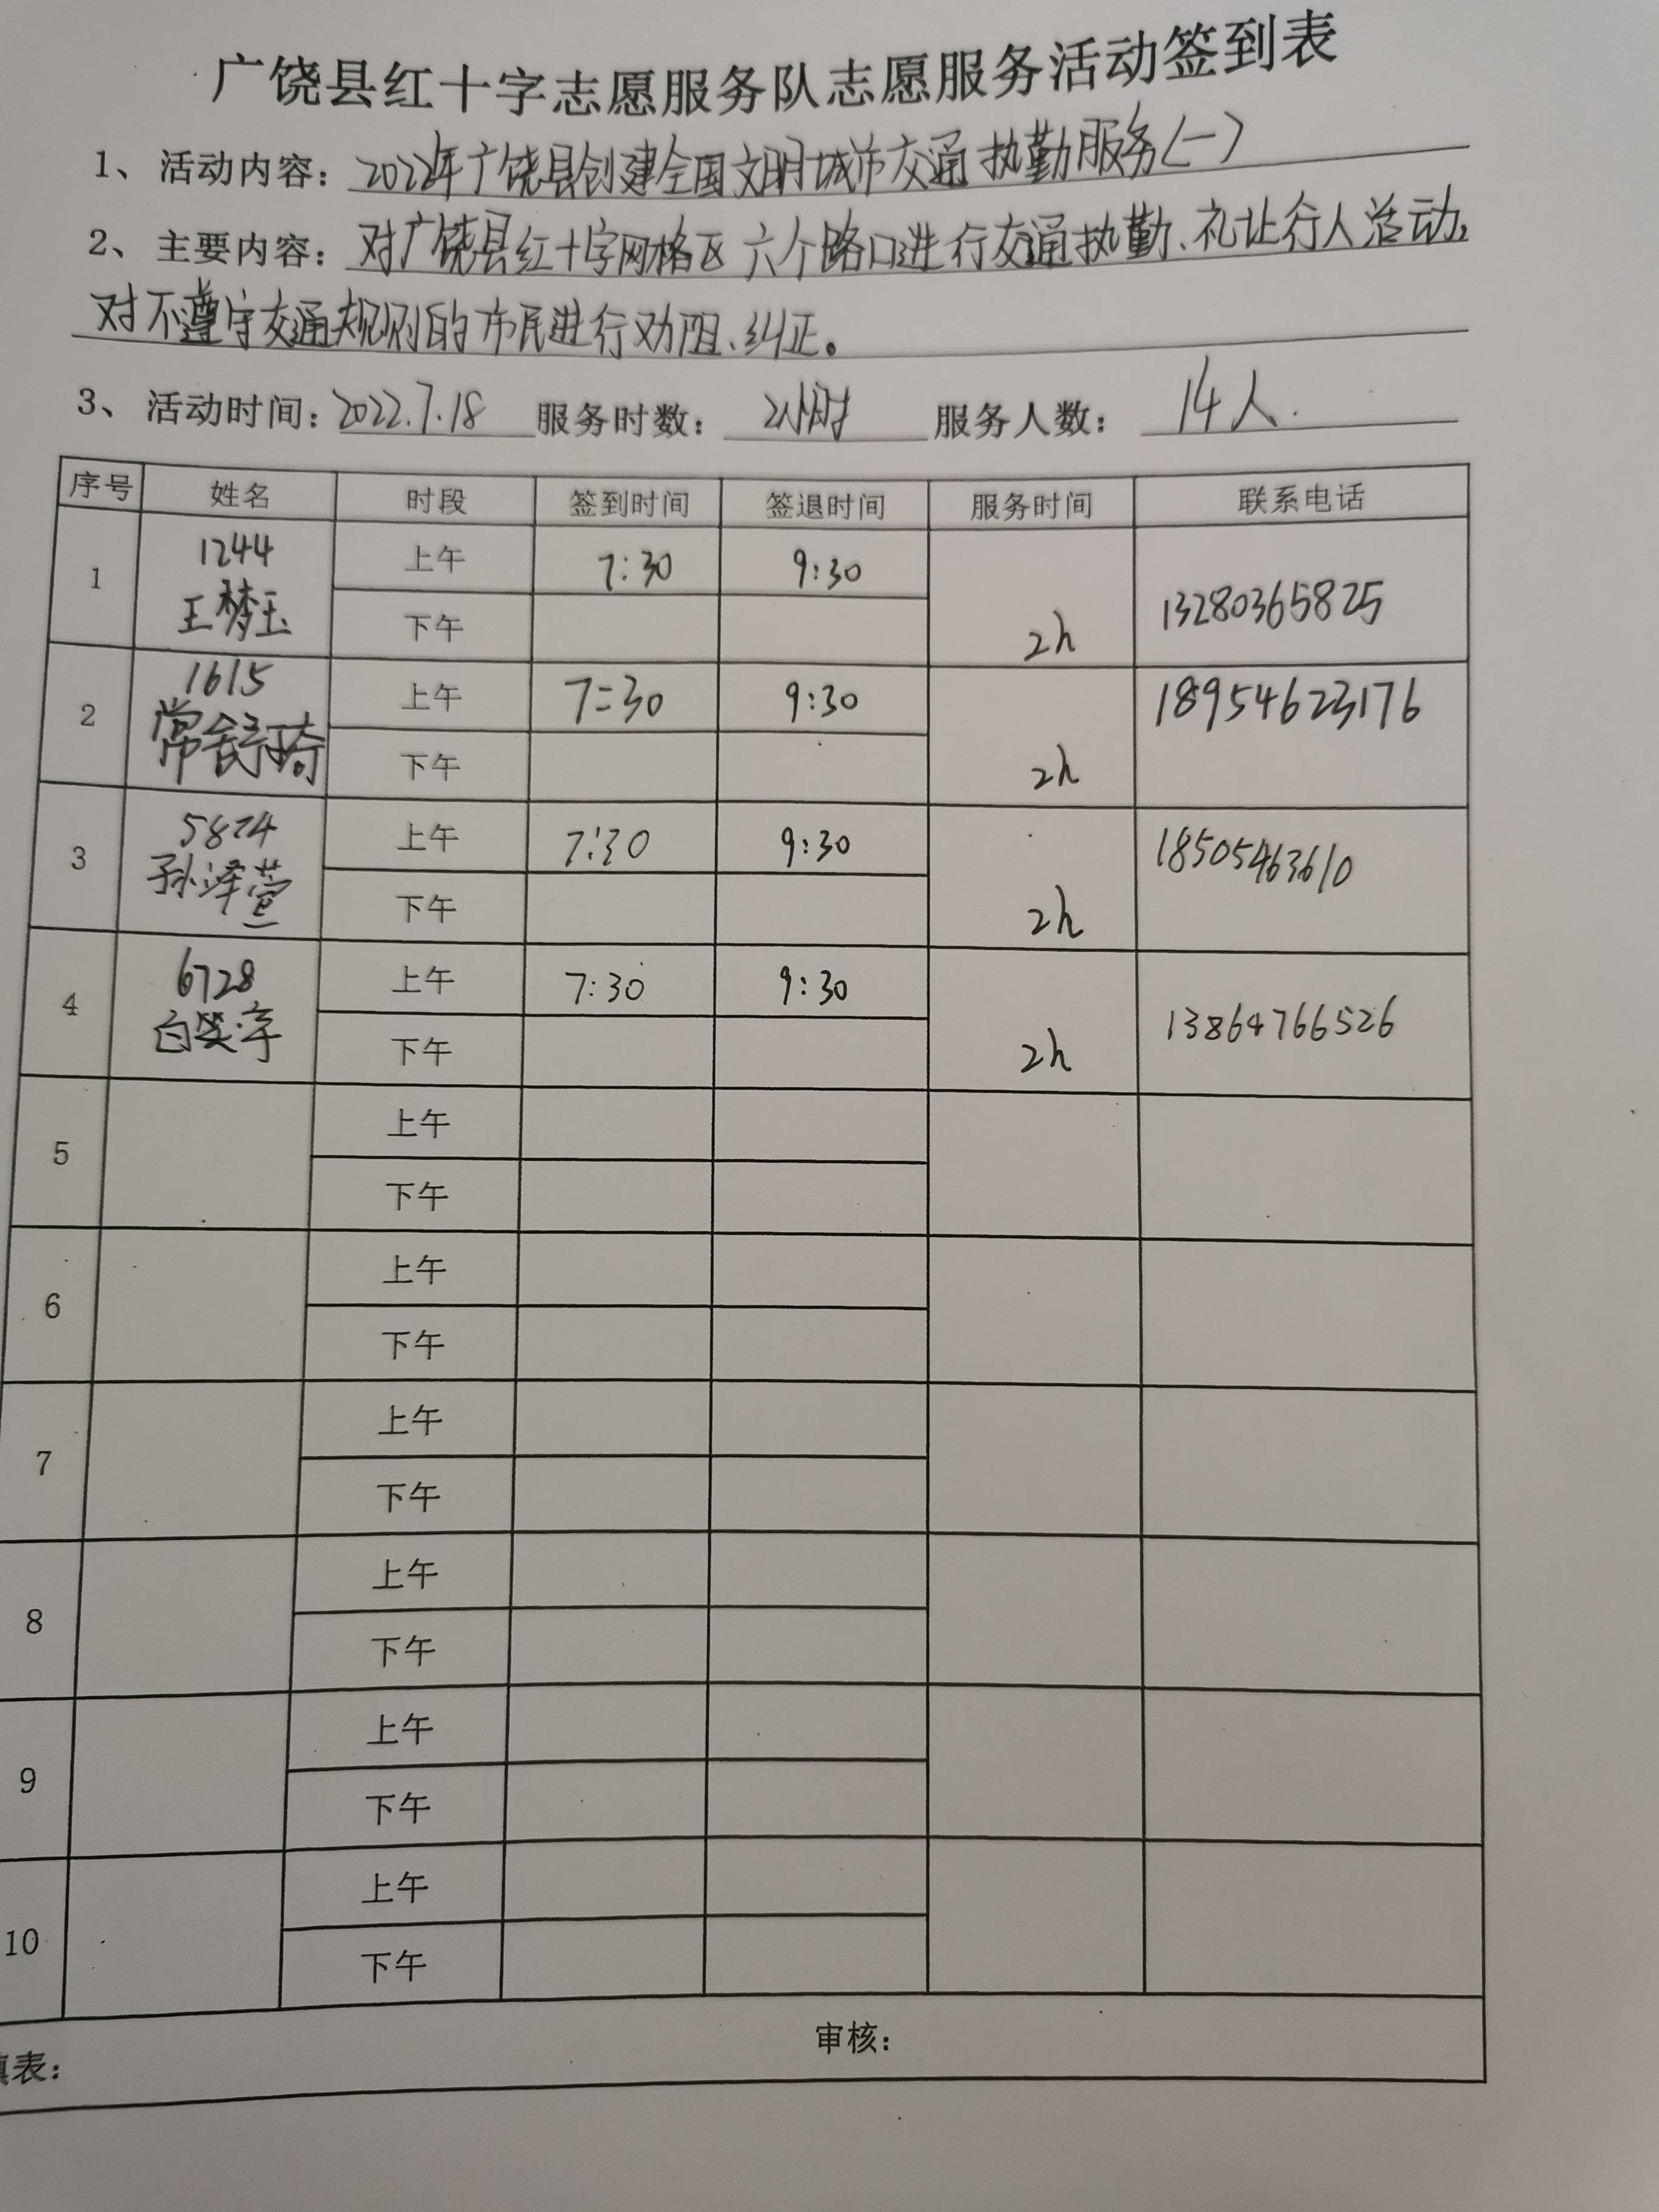 广饶县红十字志愿服务队志愿服务活动签到表
1、活动内容：2022年广饶县创建全国文明城市交通执勤服务(一)
2、主要内容：对广饶县红十字网格区六个路口进行交通执勤、礼让行人活动,
对不遵守交通规则的市民进行劝阻、纠正。
3、活动时间：2022.7.18 服务时数：2小时 服务人数：14人.
序号 姓名 时段 签到时间 签退时间 服务时间 联系电话
1 1244 上午 7:30 9:30
王梦玉 下午 2h 13280365825
2 1615 上午 7:30 9:30 18954623176
常舒琦 下午 2h
3 5824 上午 7:30 9:30 18505463610
孙泽萱 下午 2h
4 6728 上午 7:30 9:30
白笑宇 下午 2h 13864766526
5 上午
下午
6 上午
下午
7 上午
下午
8 上午
下午
9 上午
下午
10 上午
下午
填表： 审核：